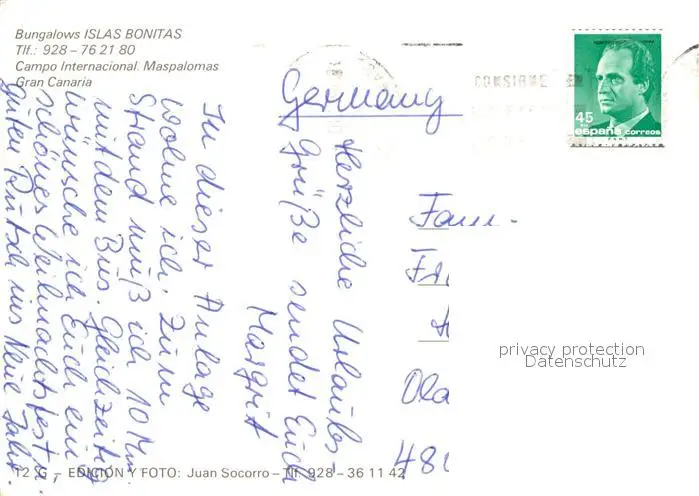 Bungalows ISLAS BONITAS
Tlf.: 928 – 76 21 80
Campo Internacional. Maspalomas
Gran Canaria
Germany
CONSIGNE EN
45
españa correos
Herzliche Urlaubs-
grüße sendet Euch
Margrit
In dieser Anlage
wohne ich. Zum
Strand muß ich 10 Min.
mit dem Bus. Gleichzeitig
wünsche ich Euch ein
schönes Weihnachtsfest u.
guten Rutsch ins Neue Jahr.
Fam.
48
privacy protection
Datenschutz
12 G – EDICIÓN Y FOTO: Juan Socorro – Tlf. 928 – 36 11 42